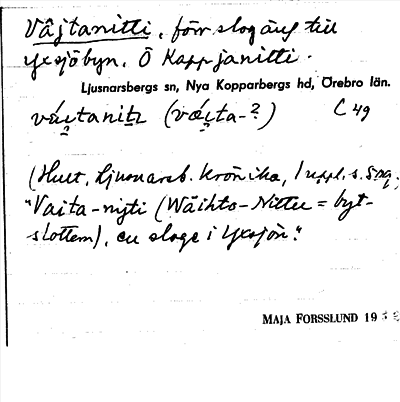 Våjtanitti, förr slogäng till
Yxsjöbyn. Ö Kappjanitti.
Ljusnarsbergs sn, Nya Kopparbergs hd, Örebro län.
C 49
(Hult, Ljusnarsb. krönika, 1 uppl. s. 5
"Vaita-nijti (Wäihto-Nittu = byt-
slottern), en sloge i Yxsjön."
MAJA FORSSLUND 19